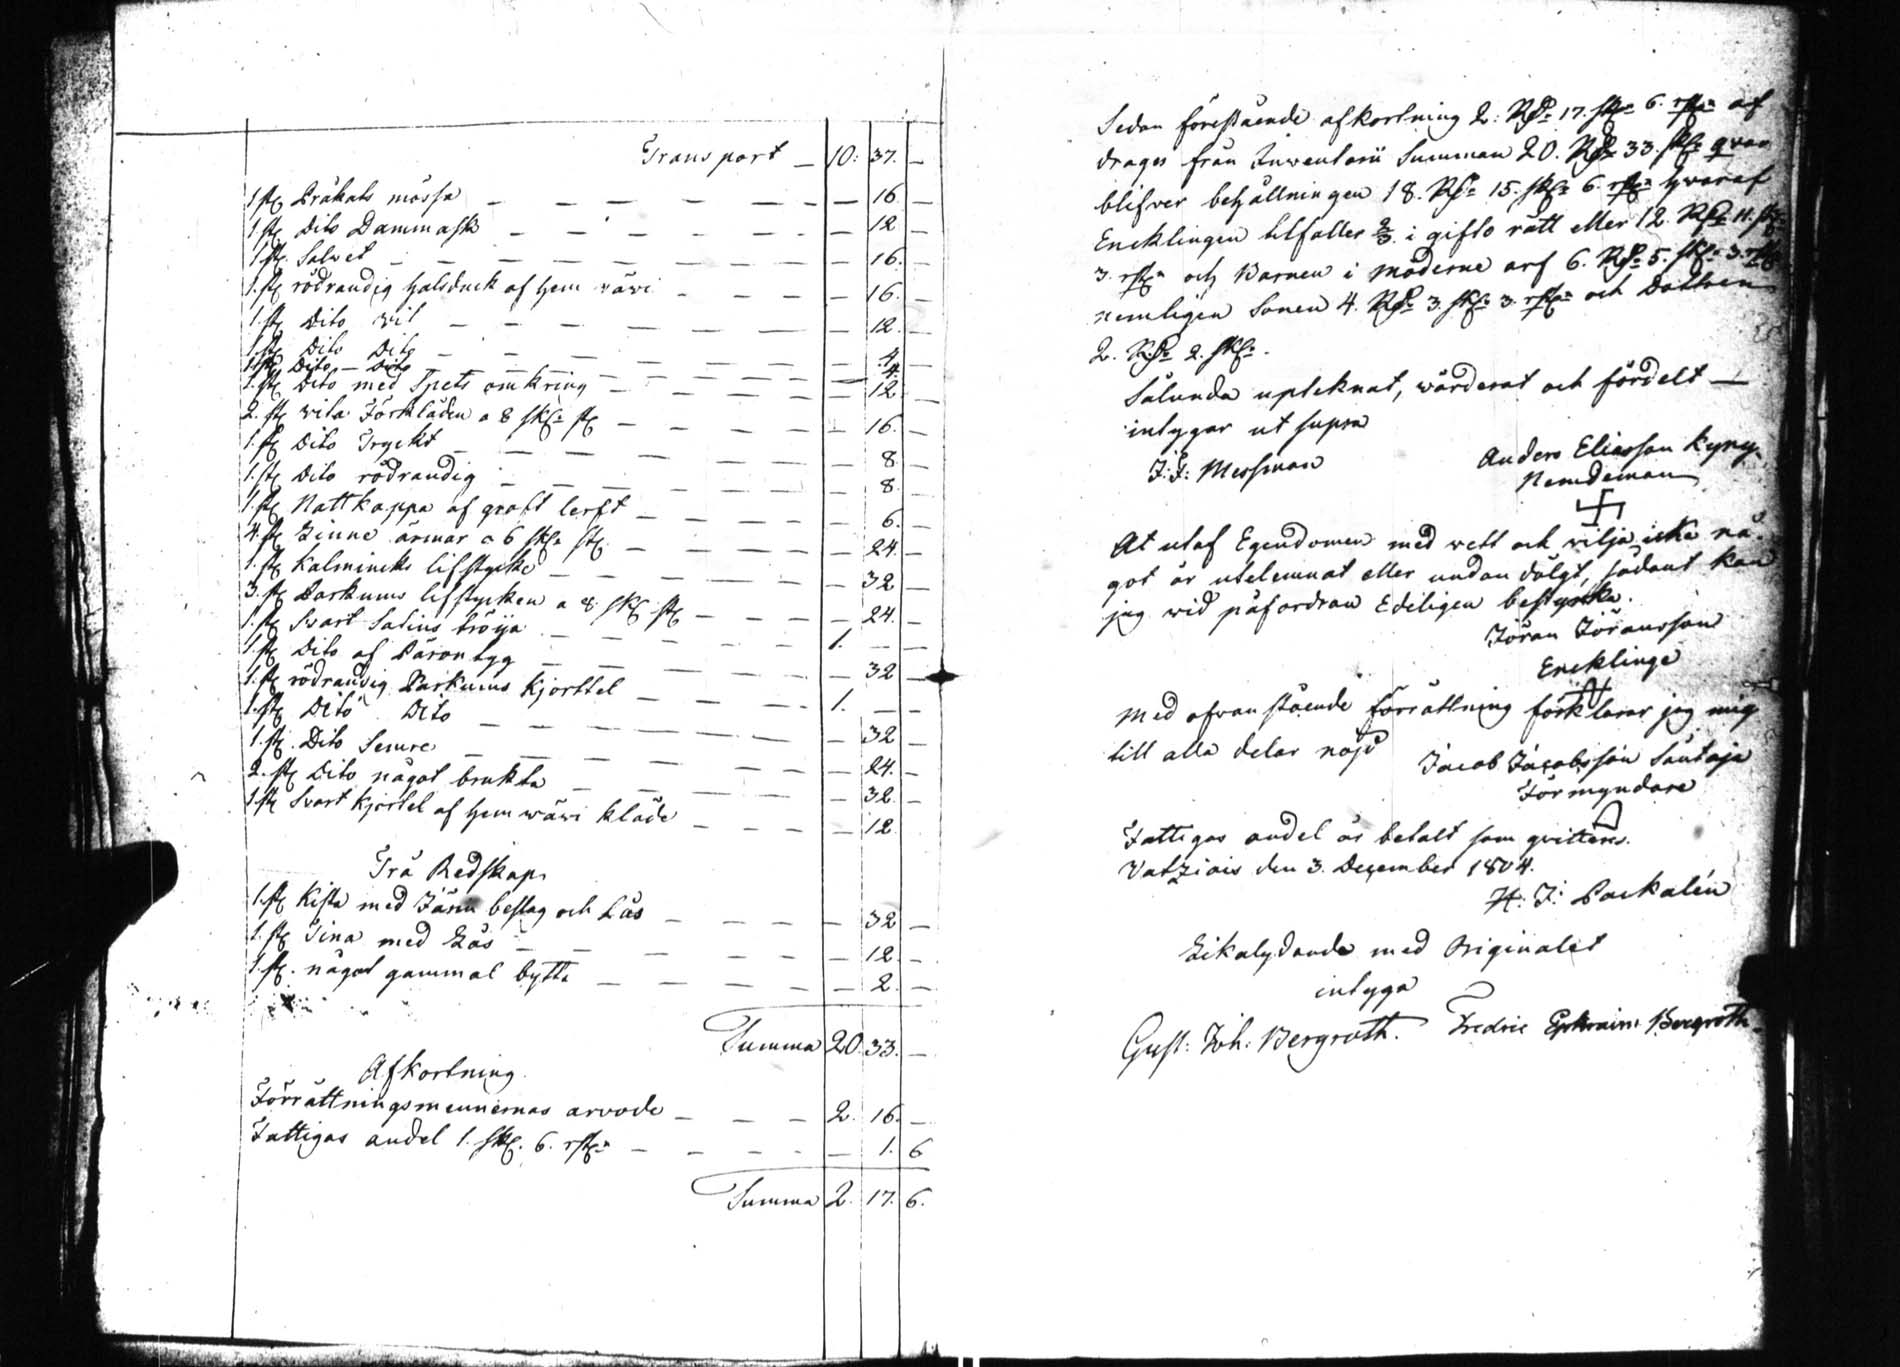 Transport — 10: 37. —
1 st. Bråkats mössa — 16. —
1. st. Dito Dammask — 12 —
1 st. Salvet — 16. —
1. st. rödrandig halsduck af hem wävi — 16. —
1. st. Dito wit — 12. —
1. st. Dito Dito — 4. —
1. st. Dito — Dito — 4. —
1. st. Dito med Spets omkring — 12 —
2. st. wita Förkläden a 8 sk: st. — 16. —
1. st. Dito Tryckt — 8 —
1. st. Dito rödrandig — 8. —
1. st. Nattkappa af groft lerft — 6. —
4. st. Linne ärmar a 6 sk: st. — 24. —
1. st. Kalmincks lifstycke — 32 —
3. st. Barkums lifstycken a 8 sk: st. — 24. —
1. st. Svart Satins tröija — 1. — —
1. st. Dito af Päron tyg — 32 —
1. st. rödrandig Barkums kjorttel — 1. — —
1. st. Dito Dito — 32 —
1. st. Dito Semre — 24. —
2. st. Dito något brukta — 32. —
1 st. Svart kjortel af hem wävi kläde — 12.
Trä Redskap
1. st. Kista med Järn beslag och Lås — 32 —
1. st. Tina med Lås — 12 —
1. st. något gammal bytta — 2. —
Summa 20. 33. —
Afkortning
Förrättningsmennernas arvode — 2. 16. —
Fattigas andel 1. sk. 6. rst: — 1. 6
Summa 2. 17. 6.
Sedan förestående afkortning 2: Rd: 17. sk: 6. rst: af
drages från Inventarii Summan 20. Rd: 33. sk: qvar
blifver behållningen 18. Rd: 15. sk: 6. rst: hvaraf
Encklingen tilfaller 2/3 i gifto rätt eller 12. Rd: 11. sk:
3. rst: och Barnen i möderne arf 6. Rd: 5. sk: 3. rst:
nemligen Sonen 4. Rd: 3. sk: 3. rst: och Dottren
2. Rd: 2. sk:.
Sålunda upteknat, wärderat och fördelt —
intygar ut supra
J: J: Messman Anders Eliasson Kyny
Nemdeman
At utaf Egendomen med wett och wilja icke nå-
got är utelemnat eller undan dölgt, sådant kan
jag wid påfordran Edeligen bestyrka.
Jöran Joransson
Encklinge
Med ofvanstående förrättning förklarar jag mig
till alla delar nöjd Jacob Jacobsson Santaja
Förmyndare
Fattigas andel är betalt som qvitteras.
den 3. December 1804.
H: J: Packalén
Likalydande med Originalet
intyga
Gust: Joh: Bergroth. Fredric Ephraim Bergroth.